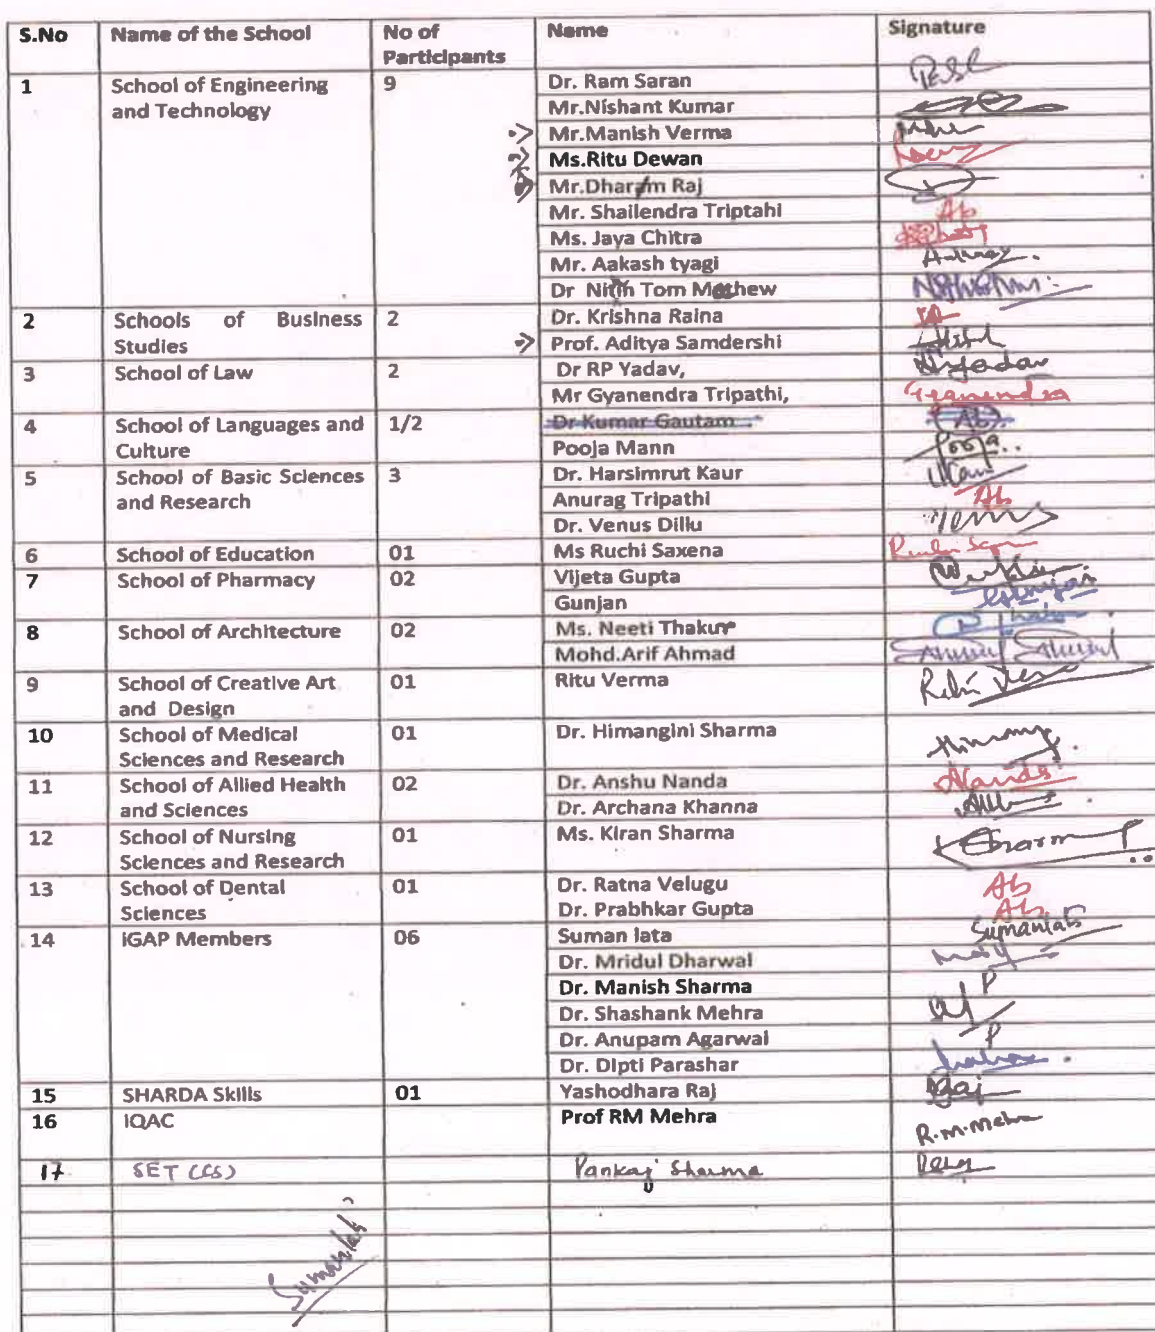 S.No Name of the School No of Participants Name Signature
1 School of Engineering and Technology 9 Dr. Ram Saran
Mr.Nishant Kumar
Mr.Manish Verma
Ms.Ritu Dewan
Mr.Dharam Raj
Mr. Shailendra Triptahi Ab
Ms. Jaya Chitra
Mr. Aakash tyagi
Dr Nitin Tom Mathew
2 Schools of Business Studies 2 Dr. Krishna Raina
Prof. Aditya Samdershi
3 School of Law 2 Dr RP Yadav,
Mr Gyanendra Tripathi, Gyanendra
4 School of Languages and Culture 1/2 Dr Kumar Gautam Ab
Pooja Mann Pooja
5 School of Basic Sciences and Research 3 Dr. Harsimrut Kaur
Anurag Tripathi Ab
Dr. Venus Dillu Venus
6 School of Education 01 Ms Ruchi Saxena
7 School of Pharmacy 02 Vijeta Gupta
Gunjan
8 School of Architecture 02 Ms. Neeti Thakur
Mohd.Arif Ahmad
9 School of Creative Art and Design 01 Ritu Verma
10 School of Medical Sciences and Research 01 Dr. Himangini Sharma
11 School of Allied Health and Sciences 02 Dr. Anshu Nanda Nanda
Dr. Archana Khanna
12 School of Nursing Sciences and Research 01 Ms. Kiran Sharma KSharma
13 School of Dental Sciences 01 Dr. Ratna Velugu Ab
Dr. Prabhkar Gupta Ab
14 IGAP Members 06 Suman lata Sumanlata
Dr. Mridul Dharwal
Dr. Manish Sharma P
Dr. Shashank Mehra
Dr. Anupam Agarwal P
Dr. Dipti Parashar
15 SHARDA Skills 01 Yashodhara Raj
16 IQAC Prof RM Mehra R.M.Mehra
17 SET (CS) Pankaj Sharma
Sumanlata